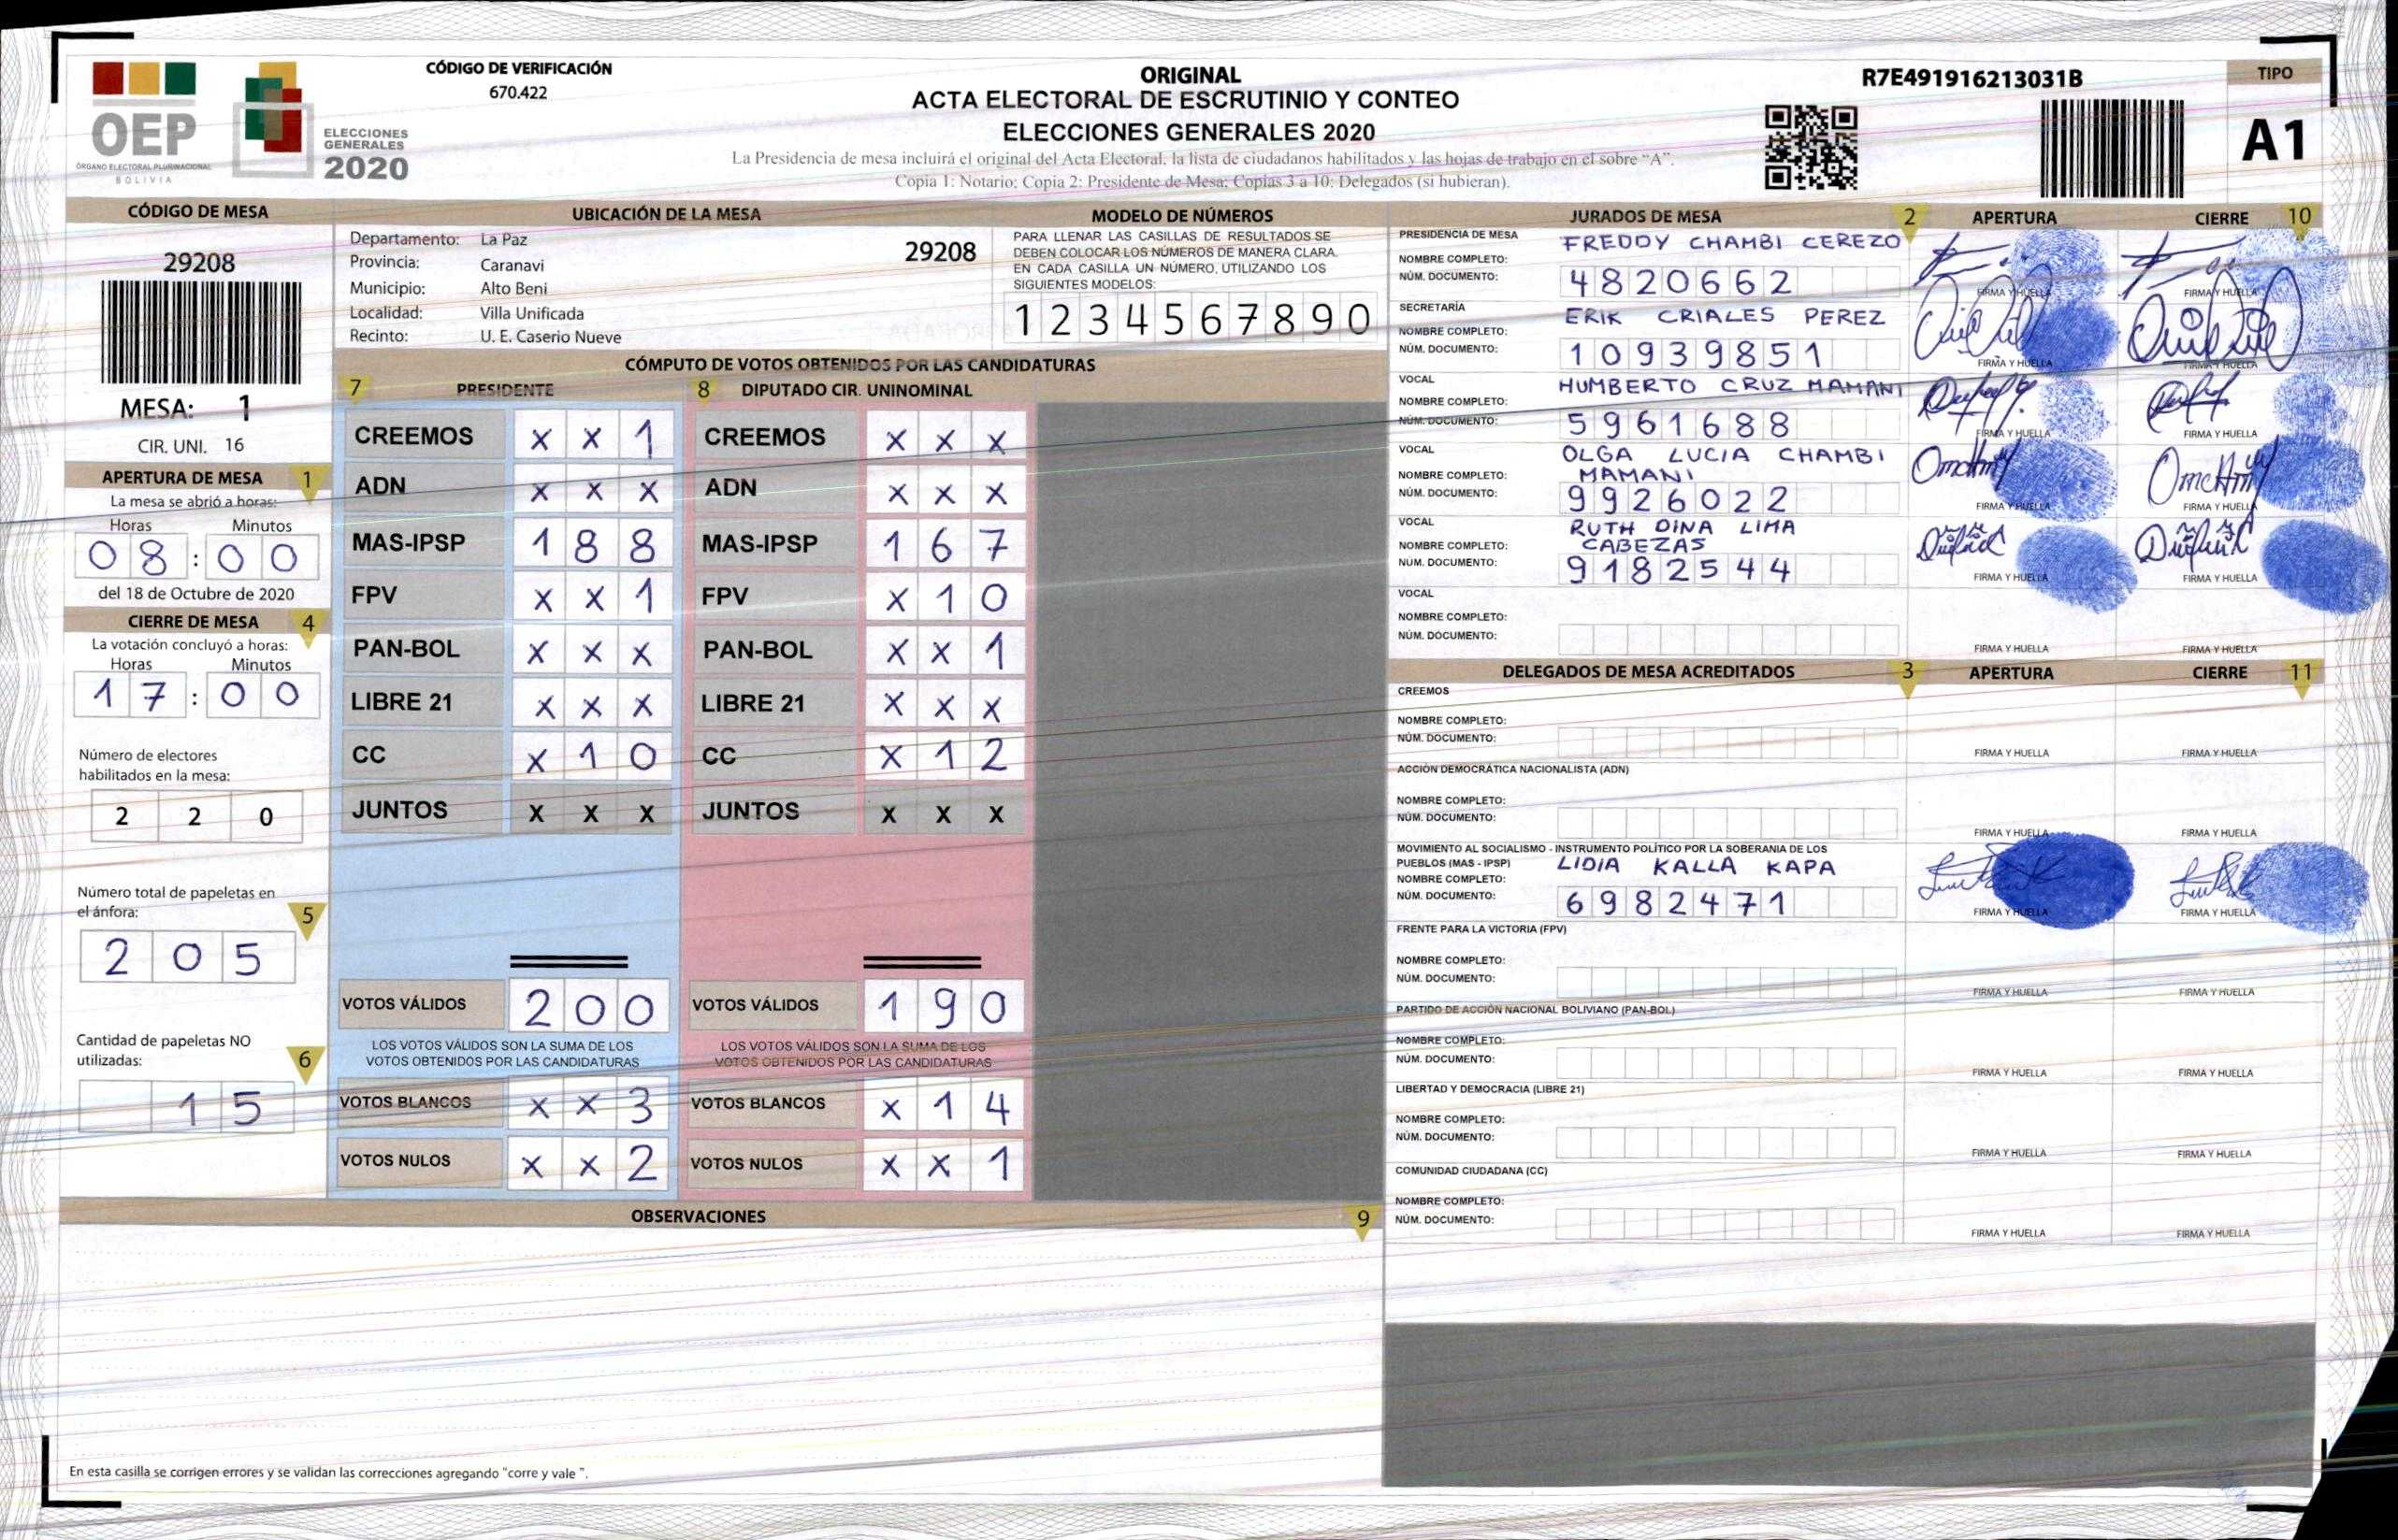 OEP
ÓRGANO ELECTORAL PLURINACIONAL
BOLIVIA
ELECCIONES
GENERALES
2020
CÓDIGO DE VERIFICACIÓN
670.422
ORIGINAL
ACTA ELECTORAL DE ESCRUTINIO Y CONTEO
ELECCIONES GENERALES 2020
La Presidencia de mesa incluirá el original del Acta Electoral, la lista de ciudadanos habilitados y las hojas de trabajo en el sobre “A”.
Copia 1: Notario; Copia 2: Presidente de Mesa; Copias 3 a 10: Delegados (si hubieran).
R7E491916213031B
TIPO
A1
CÓDIGO DE MESA
29208
MESA: 1
CIR. UNI. 16
APERTURA DE MESA 1
La mesa se abrió a horas:
Horas Minutos
08:00
del 18 de Octubre de 2020
CIERRE DE MESA 4
La votación concluyó a horas:
Horas Minutos
17:00
Número de electores
habilitados en la mesa:
2 2 0
Número total de papeletas en
el ánfora: 5
2 0 5
Cantidad de papeletas NO
utilizadas: 6
1 5
UBICACIÓN DE LA MESA
Departamento: La Paz 29208
Provincia: Caranavi
Municipio: Alto Beni
Localidad: Villa Unificada
Recinto: U. E. Caserio Nueve
MODELO DE NÚMEROS
PARA LLENAR LAS CASILLAS DE RESULTADOS SE
DEBEN COLOCAR LOS NÚMEROS DE MANERA CLARA.
EN CADA CASILLA UN NÚMERO, UTILIZANDO LOS
SIGUIENTES MODELOS:
1 2 3 4 5 6 7 8 9 0
CÓMPUTO DE VOTOS OBTENIDOS POR LAS CANDIDATURAS
7 PRESIDENTE 8 DIPUTADO CIR. UNINOMINAL
CREEMOS X X 1 CREEMOS X X X
ADN X X X ADN X X X
MAS-IPSP 1 8 8 MAS-IPSP 1 6 7
FPV X X 1 FPV X 1 0
PAN-BOL X X X PAN-BOL X X 1
LIBRE 21 X X X LIBRE 21 X X X
CC X 1 0 CC X 1 2
JUNTOS X X X JUNTOS X X X
VOTOS VÁLIDOS 2 0 0 VOTOS VÁLIDOS 1 9 0
LOS VOTOS VÁLIDOS SON LA SUMA DE LOS LOS VOTOS VÁLIDOS SON LA SUMA DE LOS
VOTOS OBTENIDOS POR LAS CANDIDATURAS VOTOS OBTENIDOS POR LAS CANDIDATURAS
VOTOS BLANCOS X X 3 VOTOS BLANCOS X 1 4
VOTOS NULOS X X 2 VOTOS NULOS X X 1
OBSERVACIONES 9
En esta casilla se corrigen errores y se validan las correcciones agregando "corre y vale ".
JURADOS DE MESA 2 APERTURA CIERRE 10
PRESIDENCIA DE MESA
NOMBRE COMPLETO: FREDDY CHAMBI CEREZO
NÚM. DOCUMENTO: 4820662
FIRMA Y HUELLA FIRMA Y HUELLA
SECRETARÍA
NOMBRE COMPLETO: ERIK CRIALES PEREZ
NÚM. DOCUMENTO: 10939851
FIRMA Y HUELLA FIRMA Y HUELLA
VOCAL
NOMBRE COMPLETO: HUMBERTO CRUZ MAMANI
NÚM. DOCUMENTO: 5961688
FIRMA Y HUELLA FIRMA Y HUELLA
VOCAL
NOMBRE COMPLETO: OLGA LUCIA CHAMBI
MAMANI
NÚM. DOCUMENTO: 9926022
FIRMA Y HUELLA FIRMA Y HUELLA
VOCAL
NOMBRE COMPLETO: RUTH DINA LIMA
CABEZAS
NÚM. DOCUMENTO: 9182544
FIRMA Y HUELLA FIRMA Y HUELLA
VOCAL
NOMBRE COMPLETO:
NÚM. DOCUMENTO:
FIRMA Y HUELLA FIRMA Y HUELLA
DELEGADOS DE MESA ACREDITADOS 3 APERTURA CIERRE 11
CREEMOS
NOMBRE COMPLETO:
NÚM. DOCUMENTO:
FIRMA Y HUELLA FIRMA Y HUELLA
ACCIÓN DEMOCRÁTICA NACIONALISTA (ADN)
NOMBRE COMPLETO:
NÚM. DOCUMENTO:
FIRMA Y HUELLA FIRMA Y HUELLA
MOVIMIENTO AL SOCIALISMO - INSTRUMENTO POLÍTICO POR LA SOBERANIA DE LOS
PUEBLOS (MAS - IPSP)
NOMBRE COMPLETO: LIDIA KALLA KAPA
NÚM. DOCUMENTO: 6982471
FIRMA Y HUELLA FIRMA Y HUELLA
FRENTE PARA LA VICTORIA (FPV)
NOMBRE COMPLETO:
NÚM. DOCUMENTO:
FIRMA Y HUELLA FIRMA Y HUELLA
PARTIDO DE ACCIÓN NACIONAL BOLIVIANO (PAN-BOL)
NOMBRE COMPLETO:
NÚM. DOCUMENTO:
FIRMA Y HUELLA FIRMA Y HUELLA
LIBERTAD Y DEMOCRACIA (LIBRE 21)
NOMBRE COMPLETO:
NÚM. DOCUMENTO:
FIRMA Y HUELLA FIRMA Y HUELLA
COMUNIDAD CIUDADANA (CC)
NOMBRE COMPLETO:
NÚM. DOCUMENTO:
FIRMA Y HUELLA FIRMA Y HUELLA